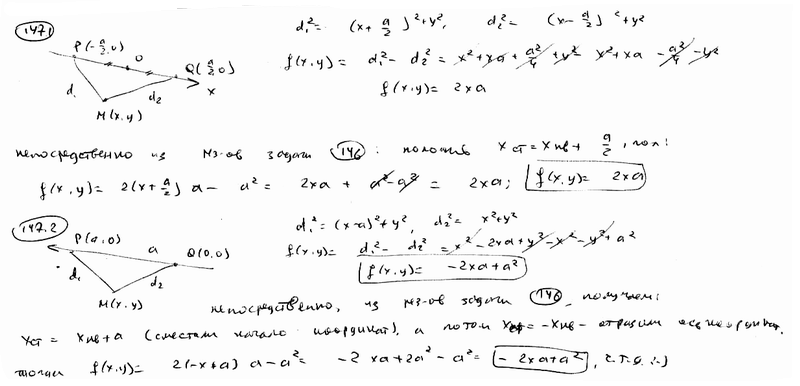 147.1
P(-a/2, 0) O Q(a/2, 0) x
d₁ d₂
M(x, y)
d₁² = (x + a/2)² + y², d₂² = (x - a/2)² + y²
f(x, y) = d₁² - d₂² = x² + xa + a²/4 + y² - x² + xa - a²/4 - y²
f(x, y) = 2xa
непосредственно из рез-ов задачи 146: положить xст = xнв + a/2, пол:
f(x, y) = 2(x + a/2) a - a² = 2xa + a² - a² = 2xa; f(x, y) = 2xa
147.2
P(a, 0) a Q(0, 0)
d₁ d₂
M(x, y)
d₁² = (x-a)² + y², d₂² = x² + y²
f(x, y) = d₁² - d₂² = x² - 2xa + y² - x² - y² + a²
f(x, y) = -2xa + a²
непосредственно, из рез-ов задачи 146, получаем:
xст = xнв + a (сместили начало координат), а потом xст = -xнв - отразим ось координат,
тогда f(x, y) = 2(-x + a) a - a² = -2xa + 2a² - a² = -2xa + a², ч.т.д. :-)